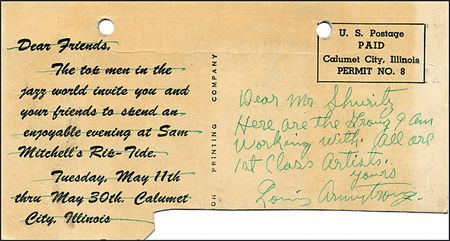 Dear Friends,
The top men in the
jazz world invite you and
your friends to spend an
enjoyable evening at Sam
Mitchell's Rip-Tide.
Tuesday, May 11th
thru May 30th. Calumet
City, Illinois
ON PRINTING COMPANY
U. S. Postage
PAID
Calumet City, Illinois
PERMIT NO. 8
Dear Mr
Here are the Group I am
Working with. All are
1st Class Artists.
Yours
Louis Armstrong.